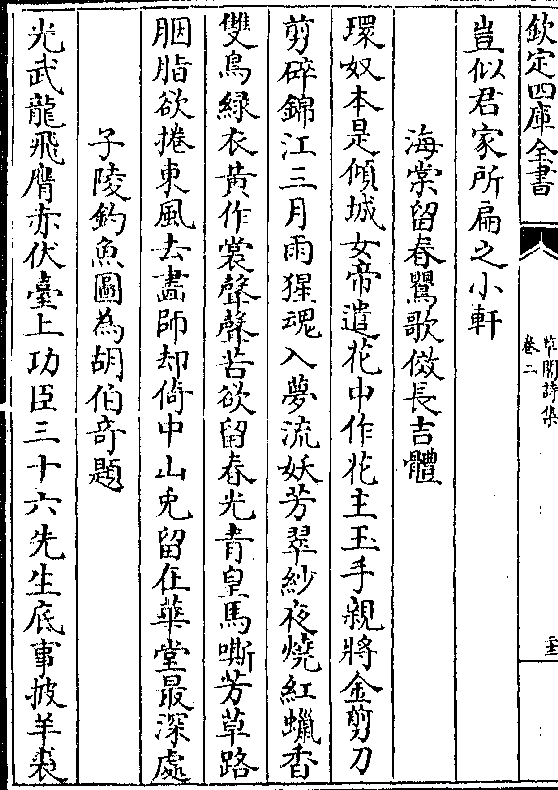 欽定四庫全書
卷二
豈似君家所扁之小軒
海棠留春鸎歌傚長吉體
環奴本是傾城女帝遣花中作花主玉手親將金剪刀
剪碎錦江三月雨猩魂入夢流妖芳翠紗夜燒紅蠟香
雙鳥綠衣黃作裳聲聲苦欲留春光青皇馬嘶芳草路
胭脂欲捲東風去畵師却倚中山兎留在華堂最深處
子陵釣魚圖為胡伯竒題
光武龍飛膺赤伏臺上功臣三十六先生底事披羊裘